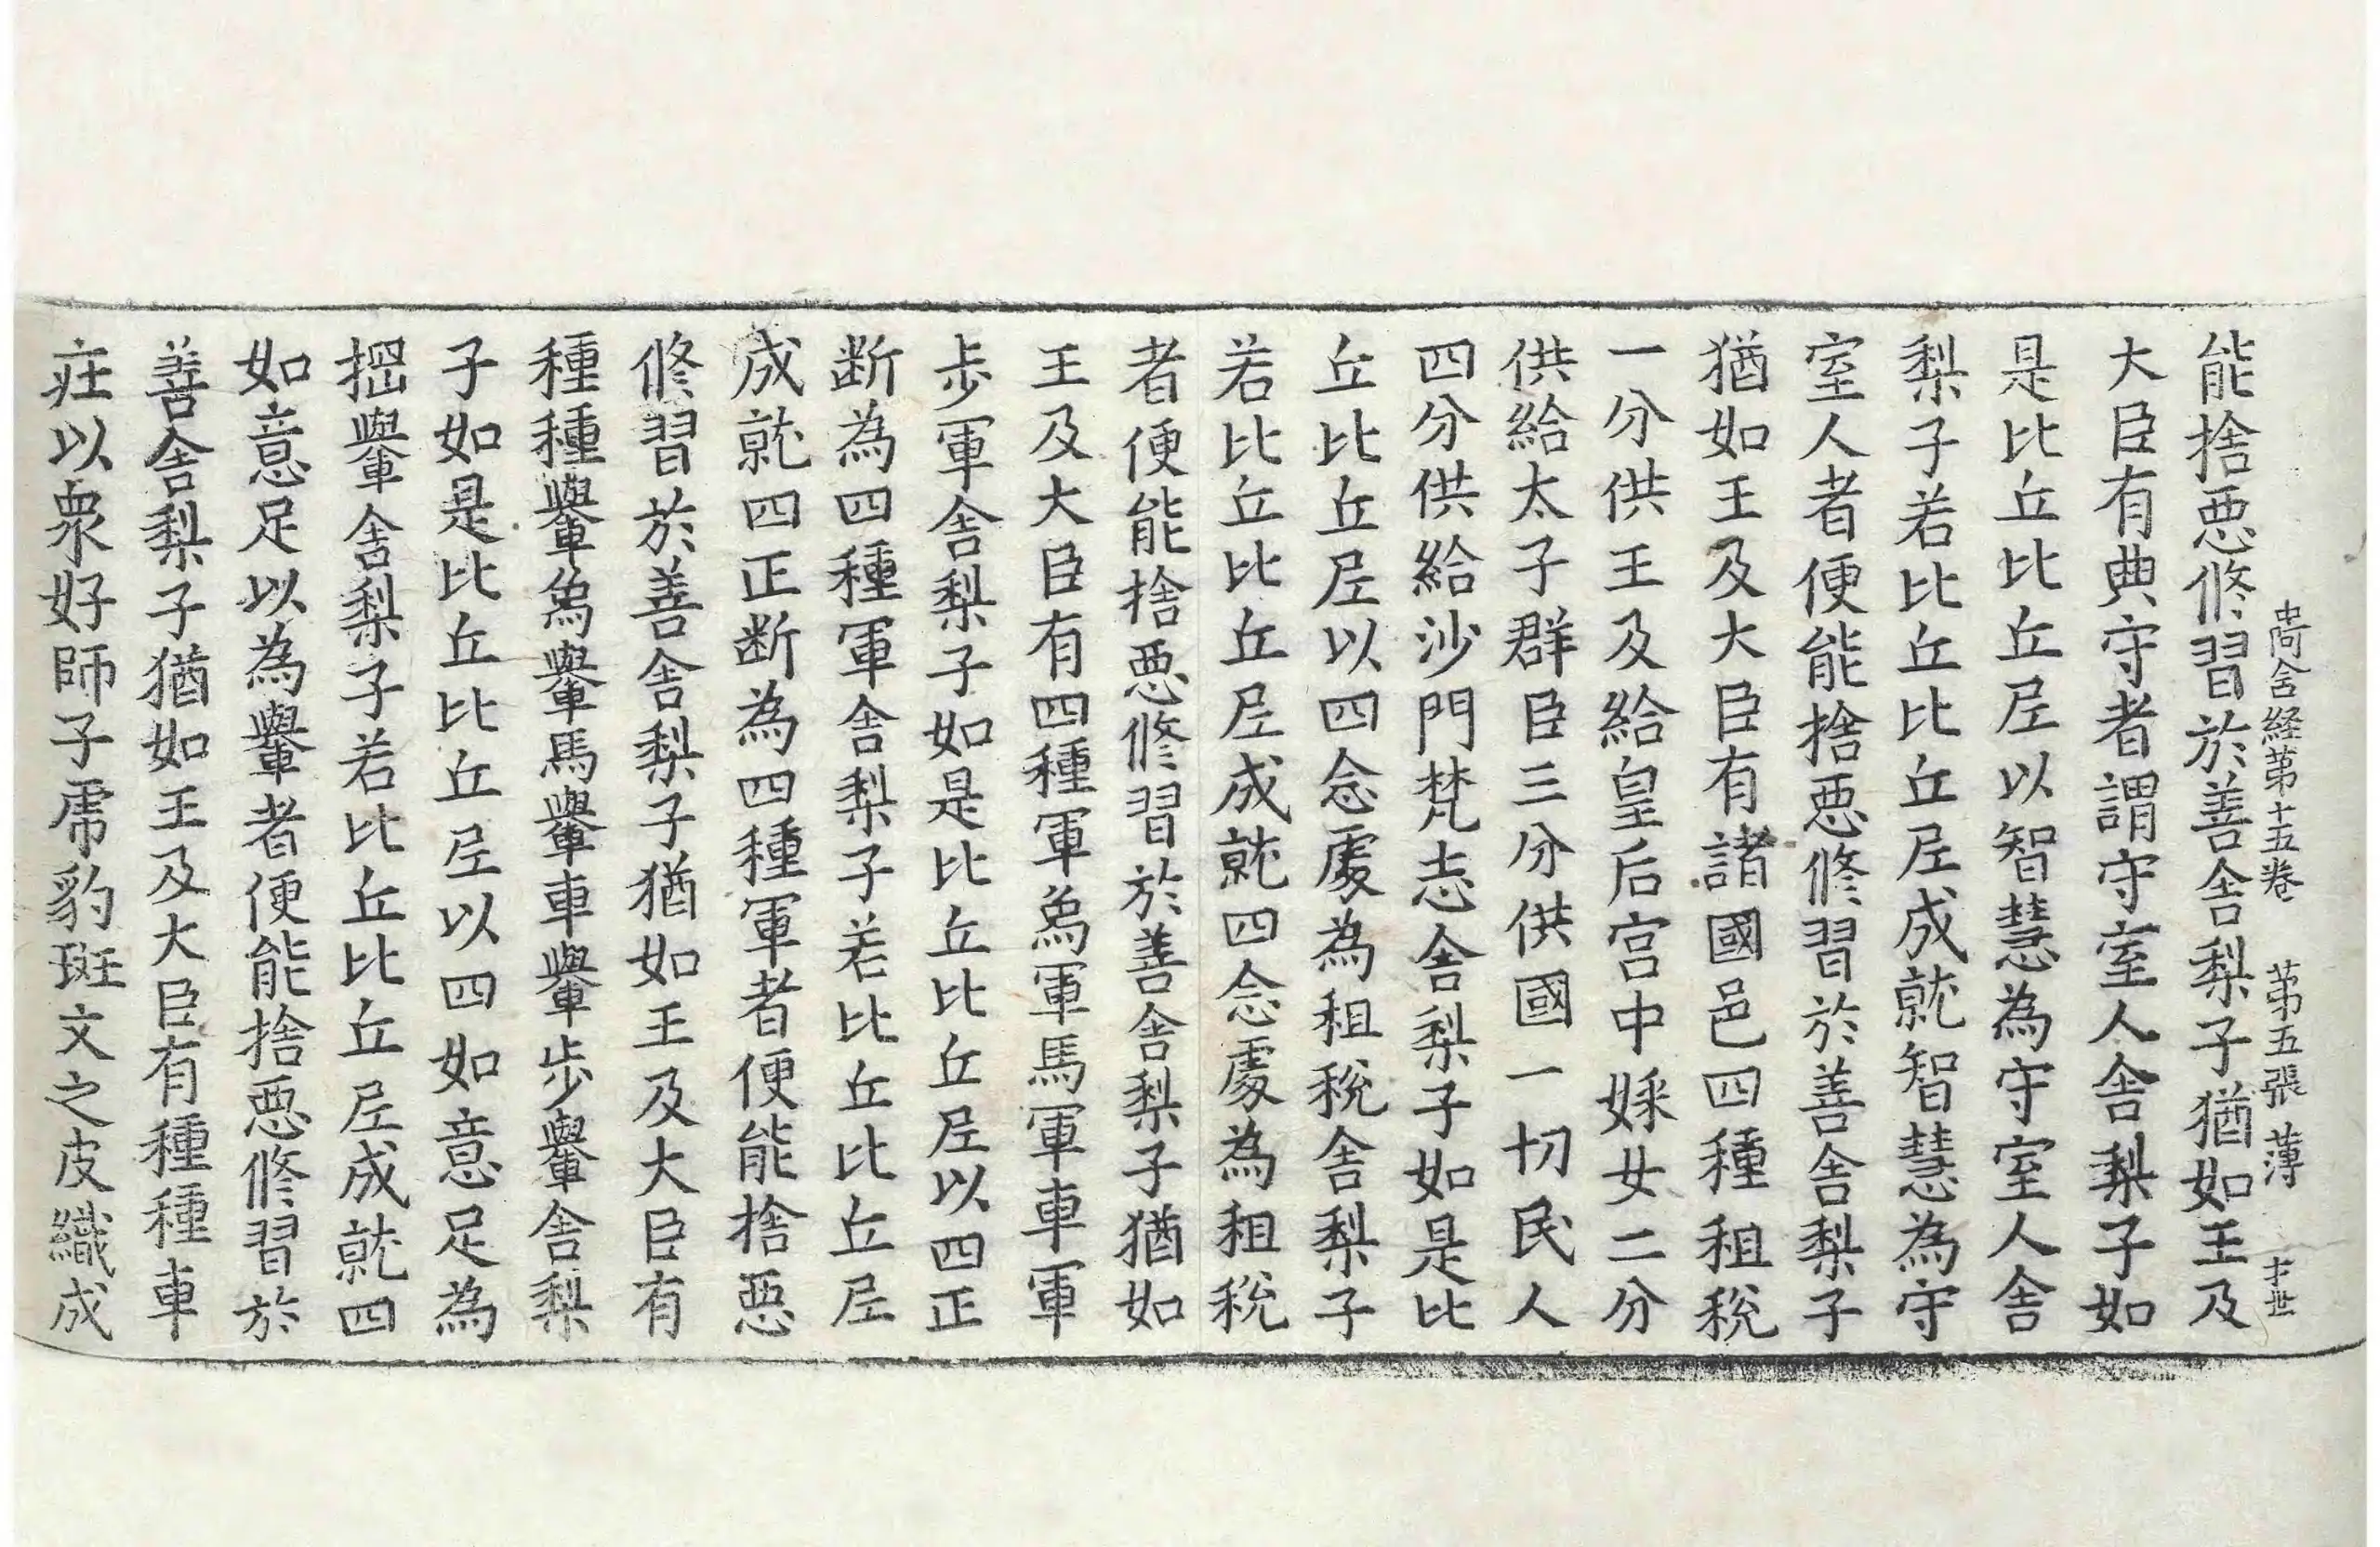 中阿含経苐十五卷 苐五張 薄
能捨悪修習於善舎梨子猶如王及
大臣有典守者謂守室人舎梨子如
是比丘比丘尼以智慧為守室人舎
梨子若比丘比丘尼成就智慧為守
室人者便能捨悪修習於善舎梨子
猶如王及大臣有諸國邑四種租稅
一分供王及給皇后宫中婇女二分
供給太子群臣三分供國一切民人
四分供給沙門梵志舎梨子如是比
丘比丘尼以四念處為租稅舎梨子
若比丘比丘尼成就四念處為租稅
者便能捨悪修習於善舎梨子猶如
王及大臣有四種軍象軍馬軍車軍
歩軍舎梨子如是比丘比丘尼以四正
断為四種軍舎梨子若比丘比丘尼
成就四正断為四種軍者便能捨悪
修習於善舎梨子猶如王及大臣有
種種轝象轝馬轝車轝歩轝舎梨
子如是比丘比丘尼以四如意足為
轝舎梨子若比丘比丘尼成就四
如意足以為轝者便能捨悪修習於
善舎梨子猶如王及大臣有種種車
疘以衆好師子虎豹斑文之皮織成